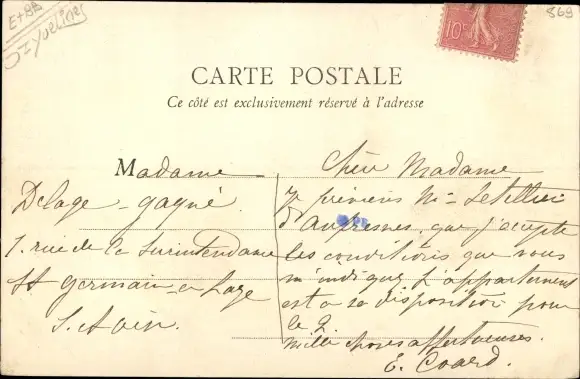 E+BD
Yvelines
869
10c
CARTE POSTALE
Ce côté est exclusivement réservé à l'adresse
Madame
Delage-gagné
1. rue de la Surintendance
St germain-en Laye
S. et Oise.
Chère Madame
je préviens Mr Letellier
d'Aufresnes, que j'accepte
les conditions que vous
m'indiquez L'appartement
est a sa disposition pour
le 2.
mille choses affectueuses.
E. Coard.